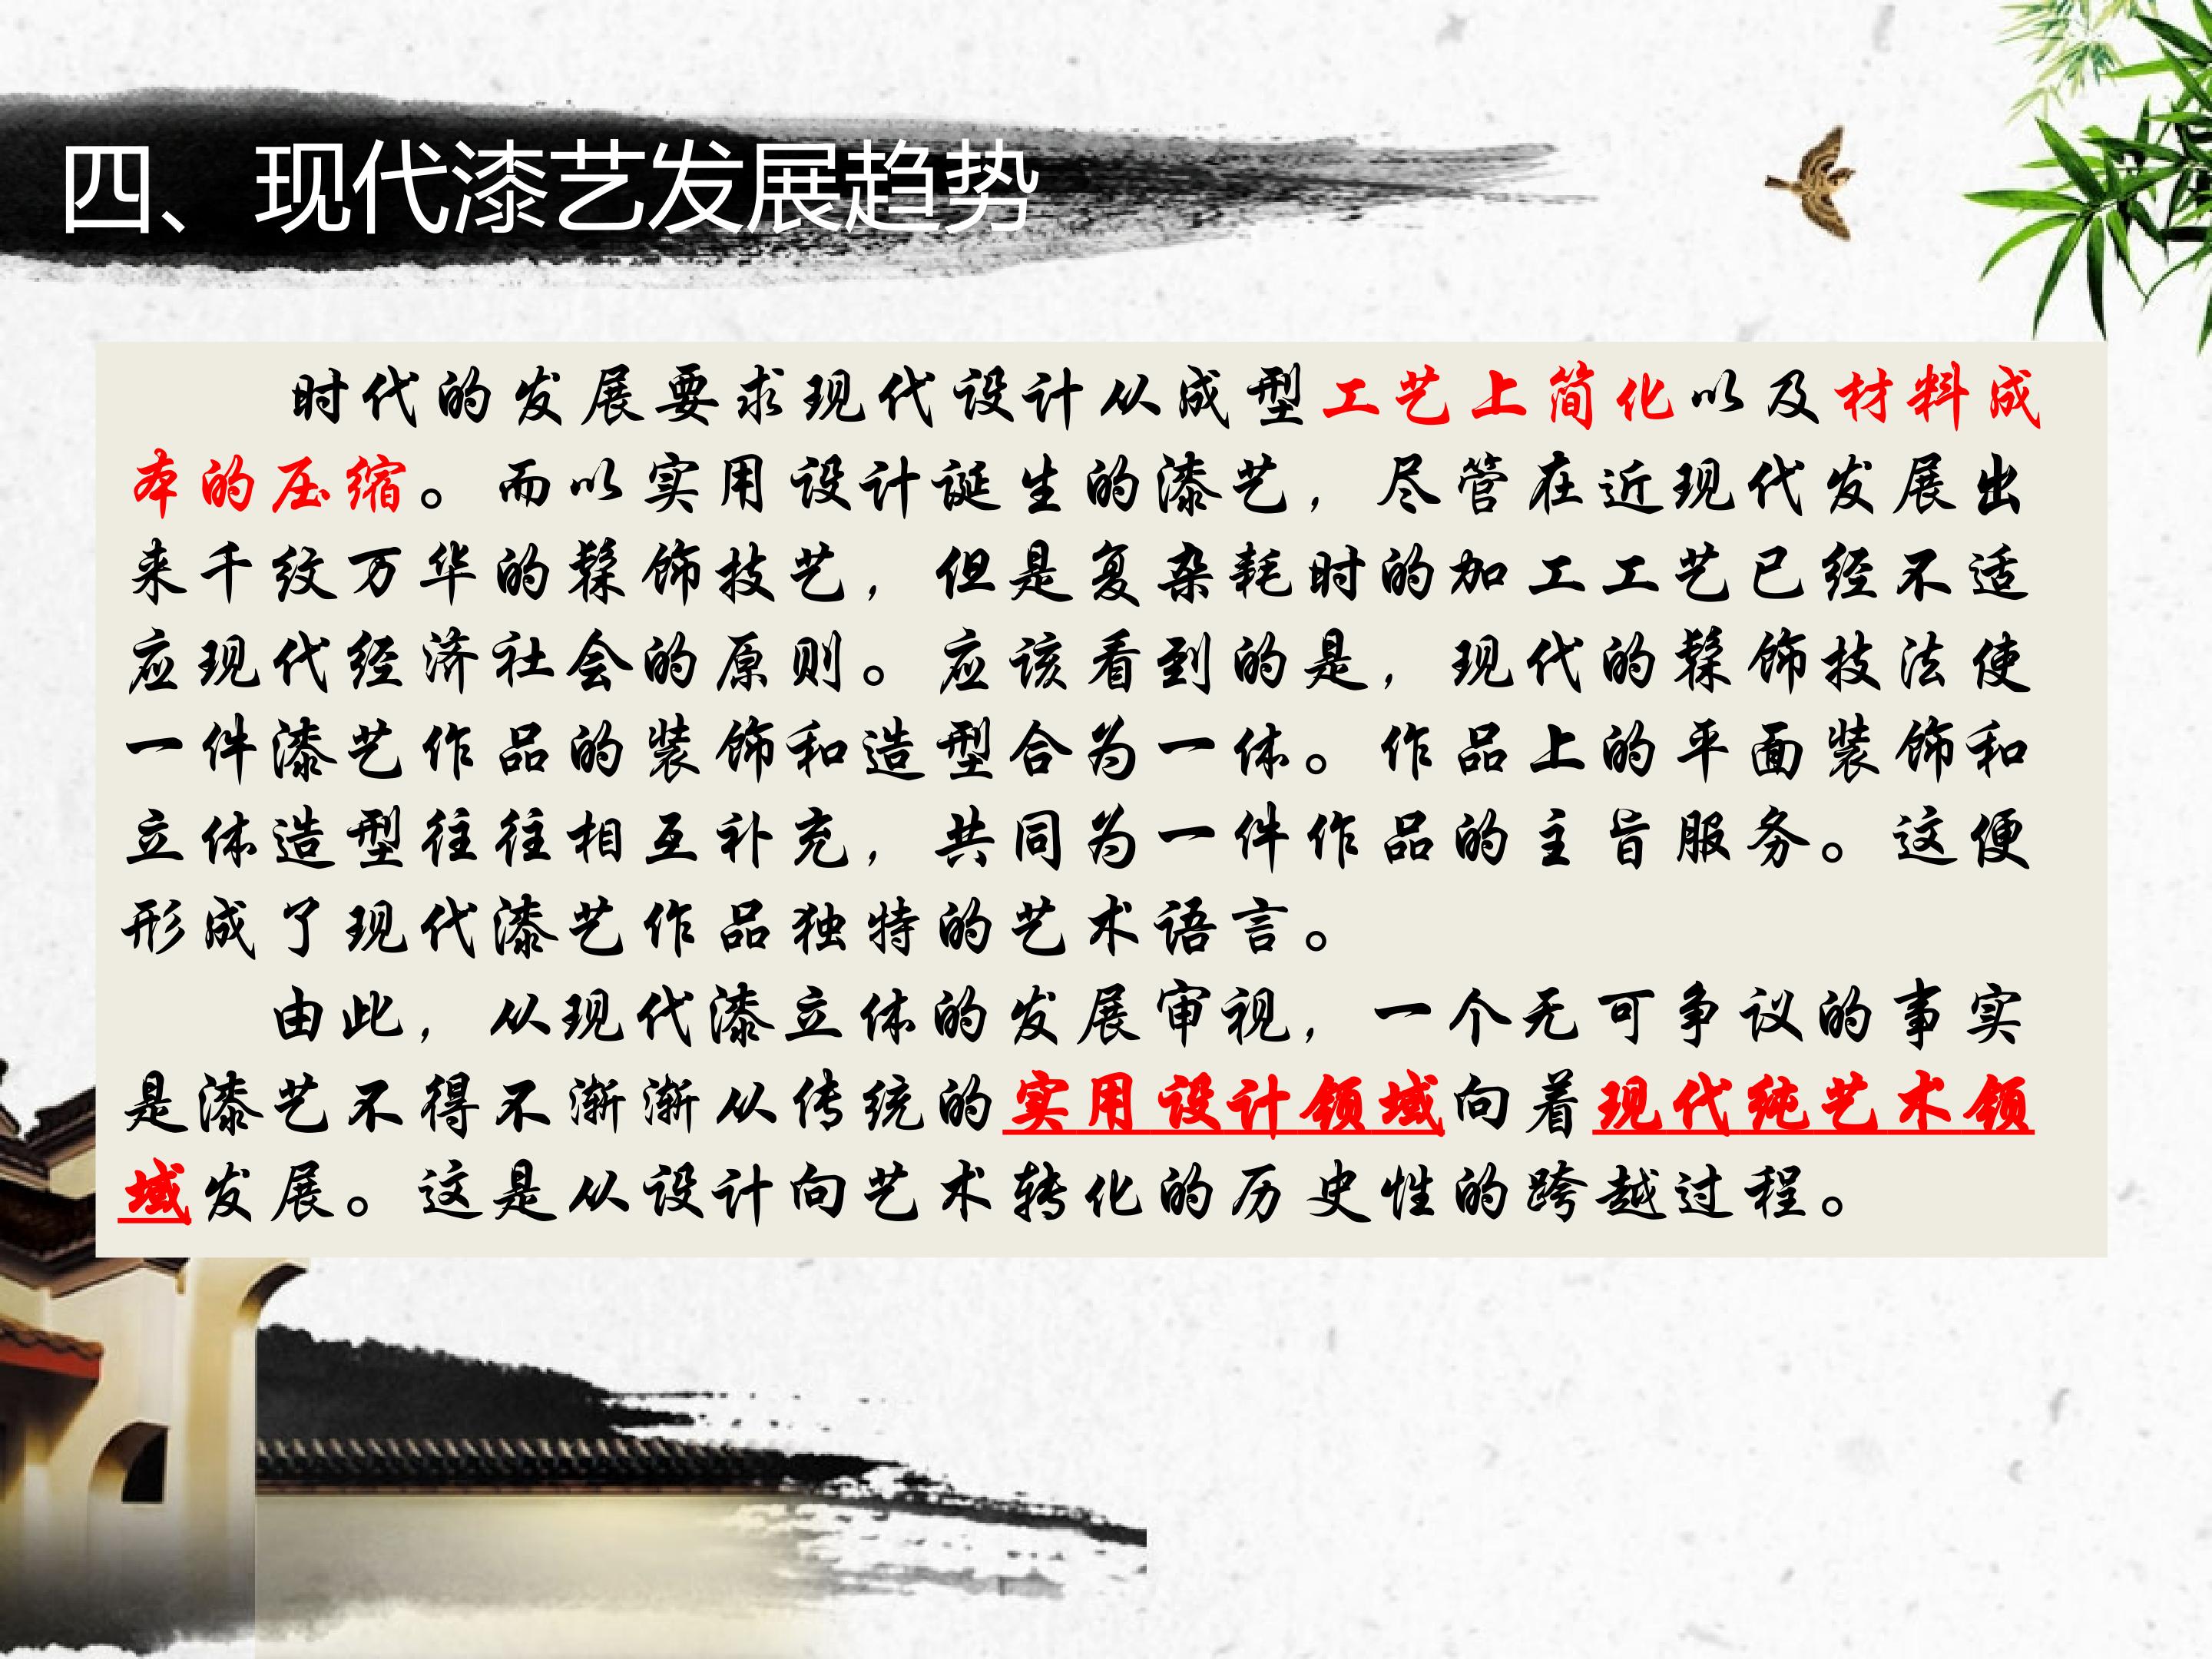 四、现代漆艺发展趋势
时代的发展要求现代设计从成型工艺上简化以及材料成
本的压缩。而以实用设计诞生的漆艺，尽管在近现代发展出
来千纹万华的髹饰技艺，但是复杂耗时的加工工艺已经不适
应现代经济社会的原则。应该看到的是，现代的髹饰技法使
一件漆艺作品的装饰和造型合为一体。作品上的平面装饰和
立体造型往往相互补充，共同为一件作品的主旨服务。这便
形成了现代漆艺作品独特的艺术语言。
由此，从现代漆立体的发展审视，一个无可争议的事实
是漆艺不得不渐渐从传统的实用设计领域向着现代纯艺术领
域发展。这是从设计向艺术转化的历史性的跨越过程。